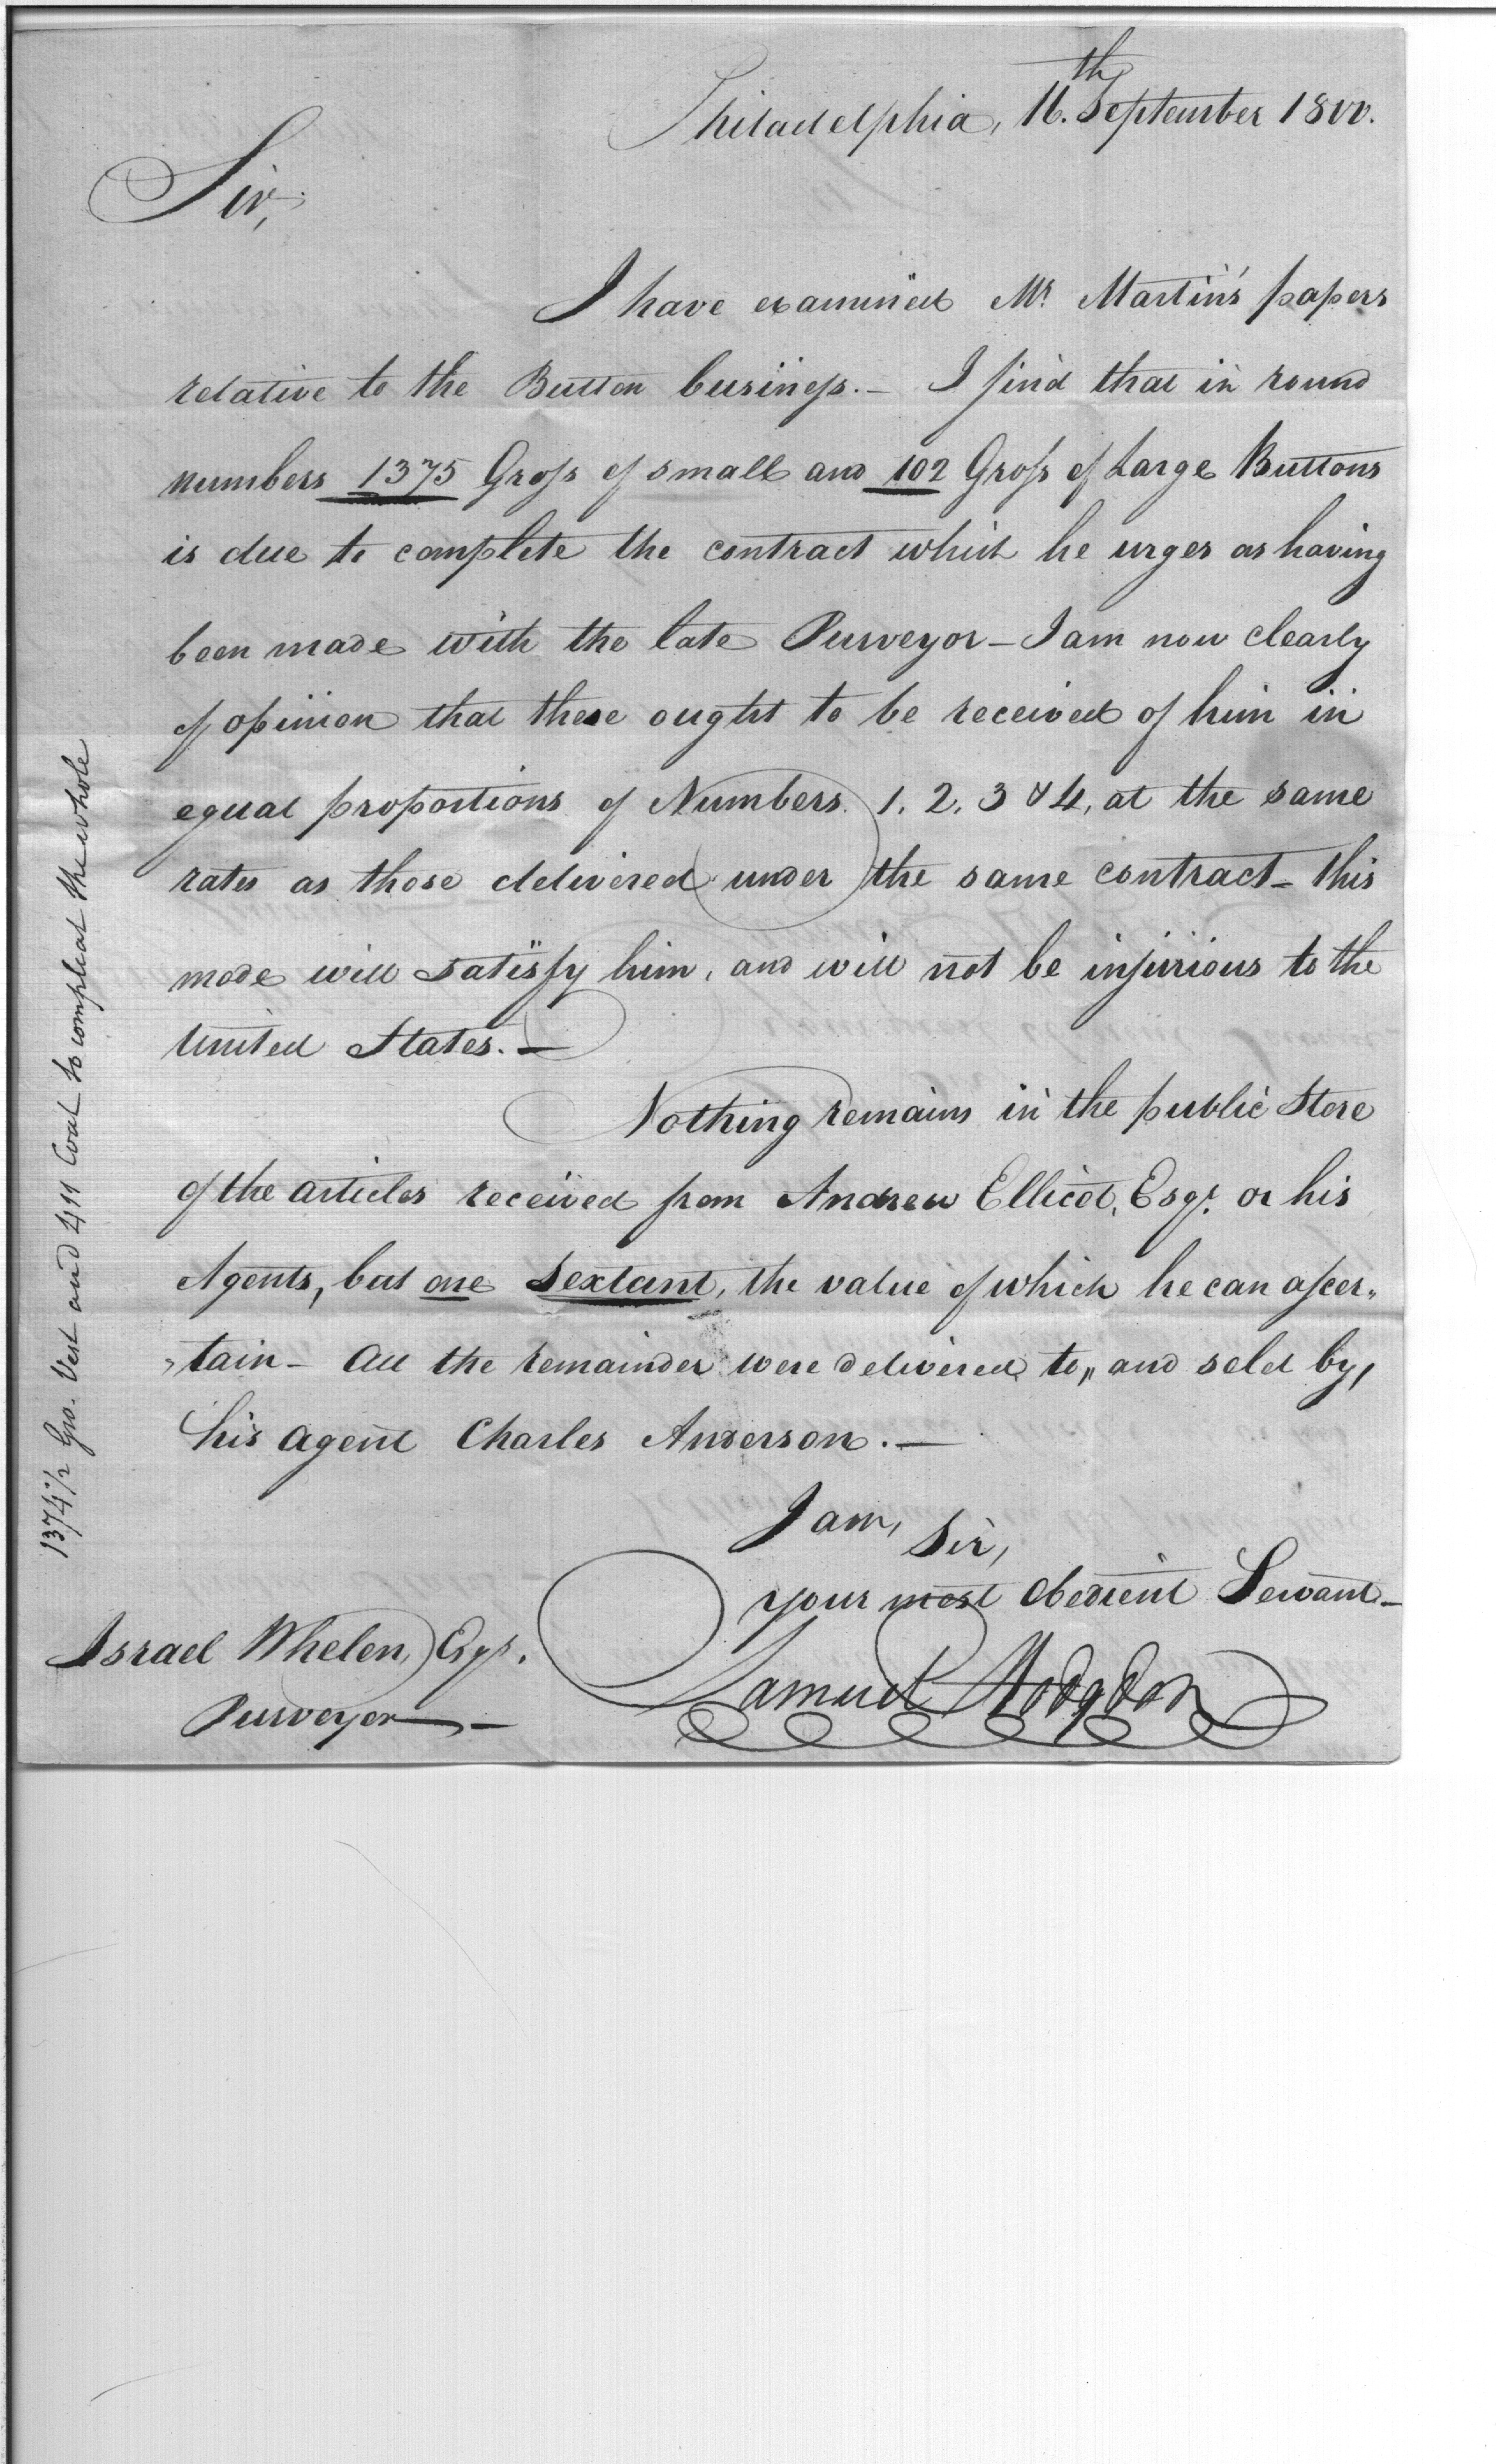 Philadelphia, 16.th September 1800.
Sir,
I have examined Mr. Martin's papers
relative to the Button business.— I find that in round
numbers 1375 Gross of small and 102 Gross of Large Buttons
is due to complete the contract which he urges as having
been made with the late Purveyor— I am now clearly
of opinion that these ought to be received of him in
equal proportions of Numbers 1. 2. 3 & 4, at the same
rates as those delivered under the same contract— this
mode will satisfy him, and will not be injurious to the
United States.—
Nothing remains in the public Store
of the articles received from Andrew Ellicot, Esqr. or his
Agents, but one Sextant, the value of which he can ascer„
„tain— All the remainder were delivered to, and sold by,
his agent Charles Anderson.—
I am,
Sir,
your most Obedient Servant—
Samuel Hodgdon
Israel Whelen, Esqr.
Purveyor—
1374 1/2 Gro. Vest and 411 Coat to compleat the whole